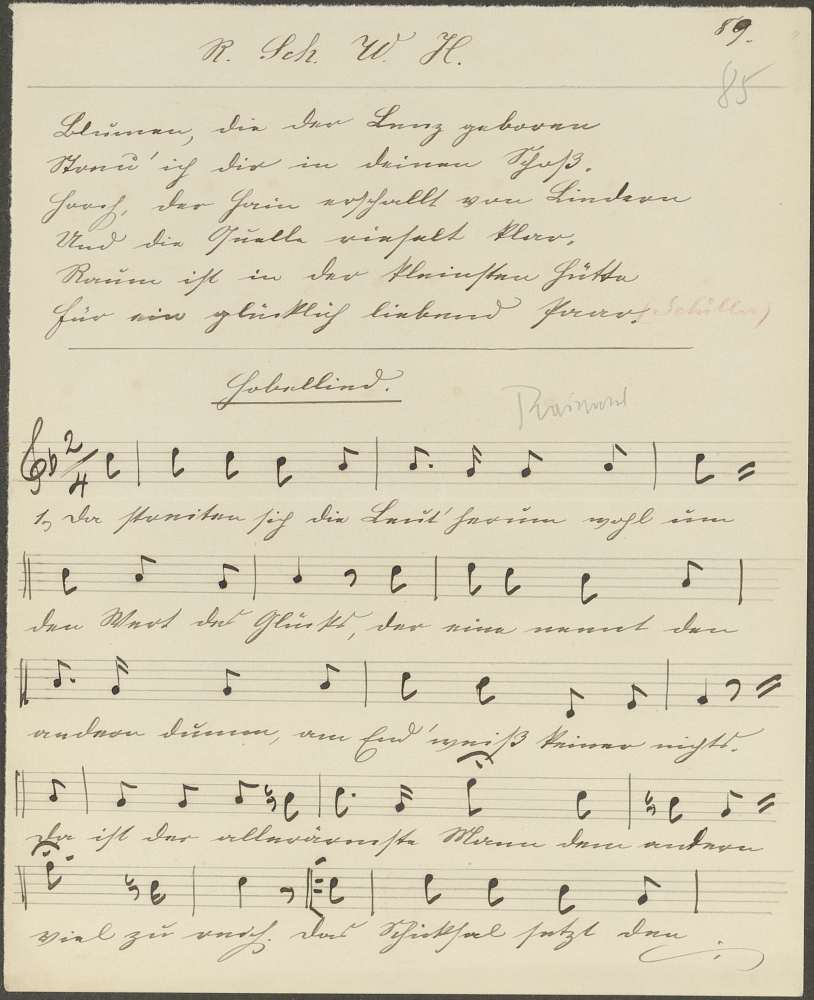 89.
R. Sch. W. H.
85
Blumen, die der Lenz geboren
Streu' ich dir in deinen Schoß.
Horch, der Hain erschallt von Liedern
Und die Quelle rieselt klar.
Raum ist in der kleinsten Hütte
für ein glücklich liebend Paar. (Schiller)
Hobellied.
Raimund
2/4
1, Da streiten sich die Leut' herum wohl um
den Wert des Glücks, der eine nennt den
andern dumm, am End' weiß keiner nichts.
Da ist der allerärmste Mann dem andern
viel zu reich. Das Schicksal setzt den